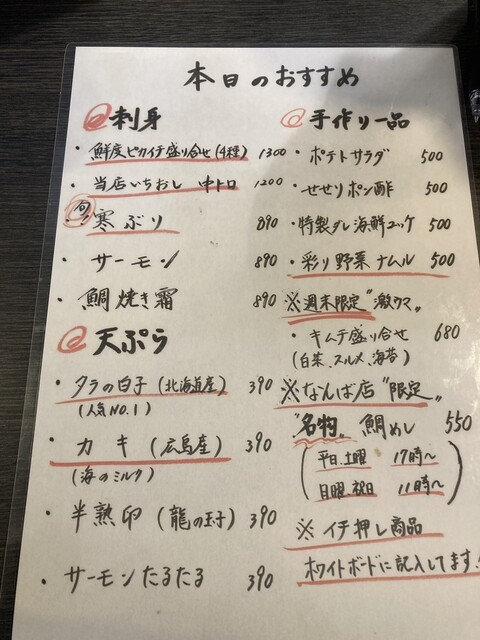 本日のおすすめ
刺身
・鮮度ピカイチ盛り合せ(4種) 1300
・当店いちおし 中トロ 1200
旬!寒ぶり 890
・サーモン 890
・鯛焼き霜 890
天ぷら
・タラの白子(北海道産) 390
(人気NO.1)
・カキ(広島産) 390
(海のミルク)
・半熟卵(龍の玉子) 390
・サーモンたるたる 390
手作り一品
・ポテトサラダ 500
・せせりポン酢 500
・特製ダレ海鮮ユッケ 500
・彩り野菜ナムル 500
※週末限定"激ウマ"
・キムチ盛り合せ 680
(白菜、スルメ、海苔)
※なんば店"限定"
"名物"鯛めし 550
(平日.土曜 17時〜
日曜.祝日 11時〜)
※イチ押し商品
ホワイトボードに記入してます!